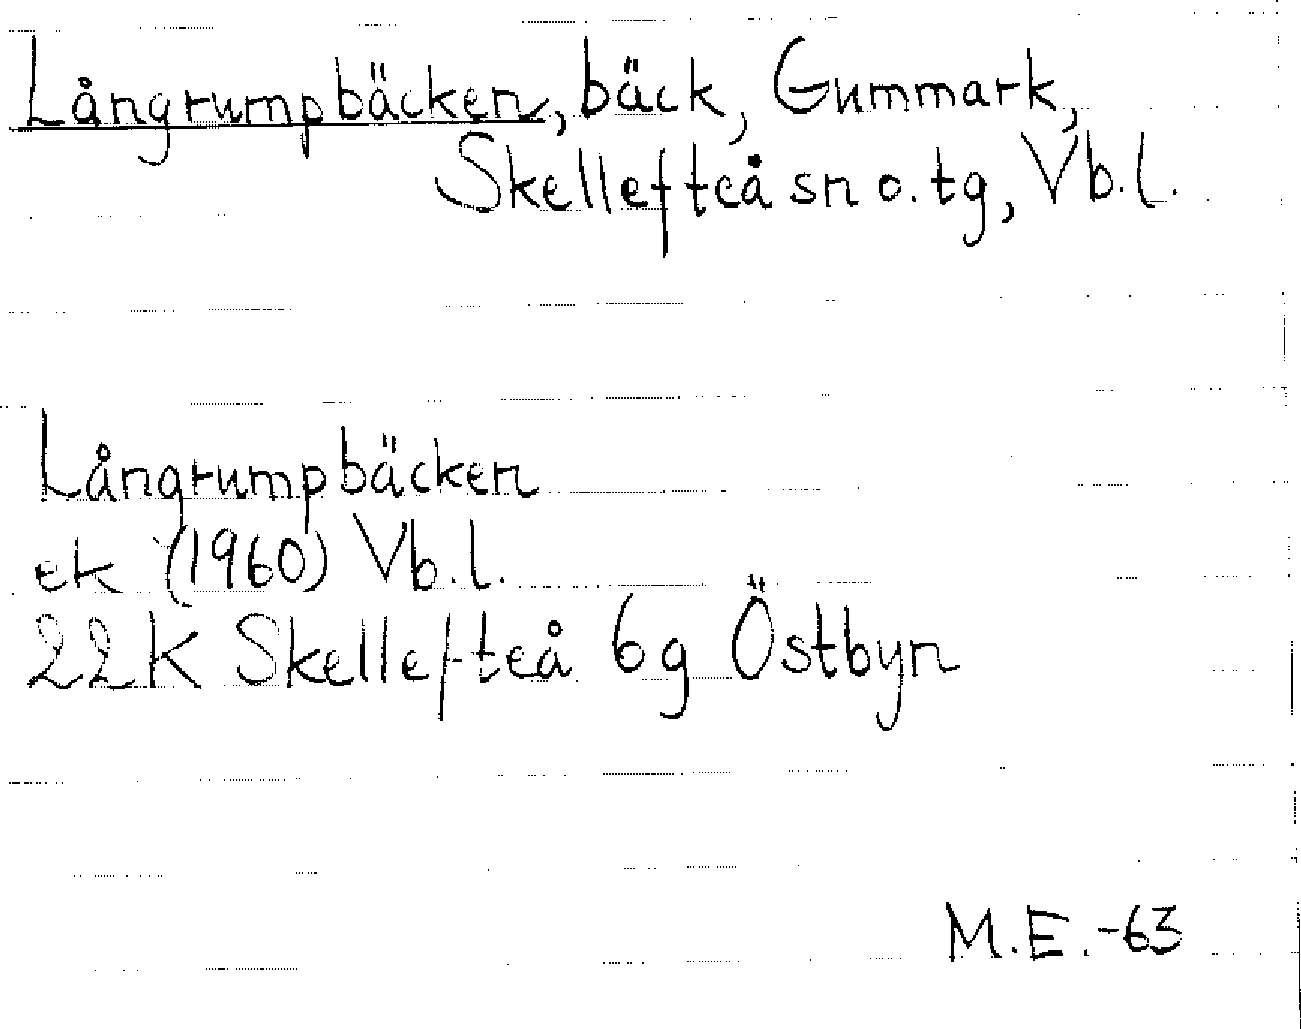 Långrumpbäcken, bäck, Gummark,
Skellefteå sn o. tg, Vb. l.
Långrumpbäcken
ek (1960) Vb. l.
22K Skellefteå 6g Östbyn
M.E.-63